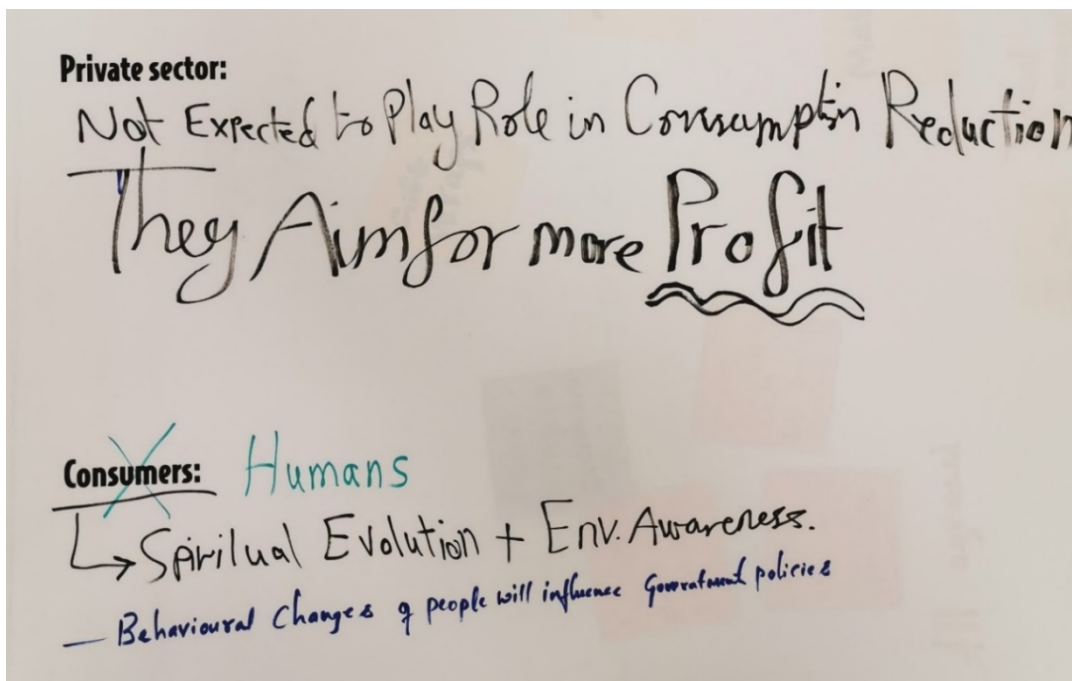 Private sector:
Not Expected to Play Role in Consumption Reduction
They Aim for more Profit
Consumers: Humans
Spiritual Evolution + Env. Awareness.
Behavioural Changes of people will influence policies